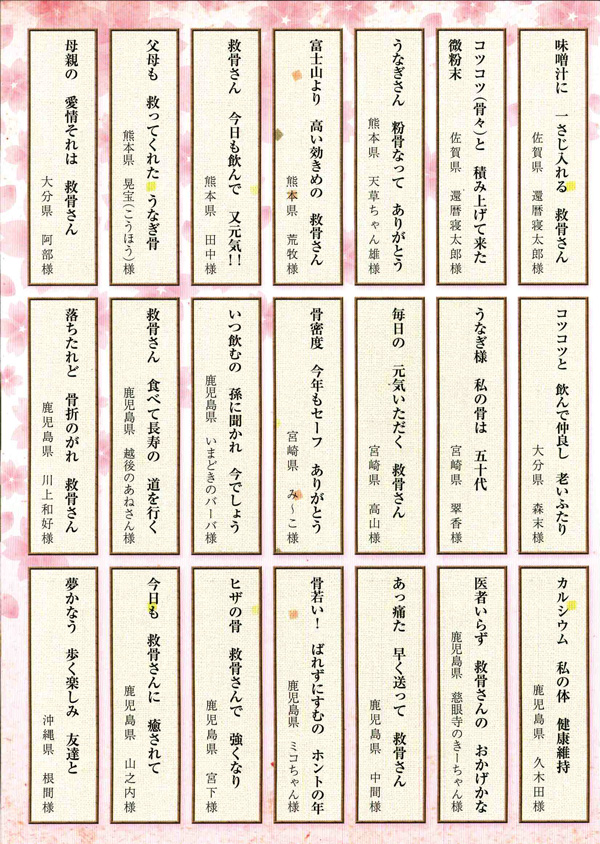 味噌汁に　一さじ入れる　救骨さん
佐賀県　還暦寝太郎様
コツコツ(骨々)と　積み上げて来た
微粉末
佐賀県　還暦寝太郎様
うなぎさん　粉骨なって　ありがとう
熊本県　天草ちゃん雄様
富士山より　高い効きめの　救骨さん
熊本県　荒牧様
救骨さん　今日も飲んで　又元気!!
熊本県　田中様
父母も　救ってくれた　うなぎ骨
熊本県　晃宝(こうほう)様
母親の　愛情それは　救骨さん
大分県　阿部様
コツコツと　飲んで仲良し　老いふたり
大分県　森末様
うなぎ様　私の骨は　五十代
宮崎県　翠香様
毎日の　元気いただく　救骨さん
宮崎県　高山様
骨密度　今年もセーフ　ありがとう
宮崎県　み～こ様
いつ飲むの　孫に聞かれ　今でしょう
鹿児島県　いまどきのバーバ様
救骨さん　食べて長寿の　道を行く
鹿児島県　越後のあねさん様
落ちたれど　骨折のがれ　救骨さん
鹿児島県　川上和好様
カルシウム　私の体　健康維持
鹿児島県　久木田様
医者いらず　救骨さんの　おかげかな
鹿児島県　慈眼寺のきーちゃん様
あっ痛た　早く送って　救骨さん
鹿児島県　中間様
骨若い！　ばれずにすむの　ホントの年
鹿児島県　ミコちゃん様
ヒザの骨　救骨さんで　強くなり
鹿児島県　宮下様
今日も　救骨さんに　癒されて
鹿児島県　山之内様
夢かなう　歩く楽しみ　友達と
沖縄県　根間様